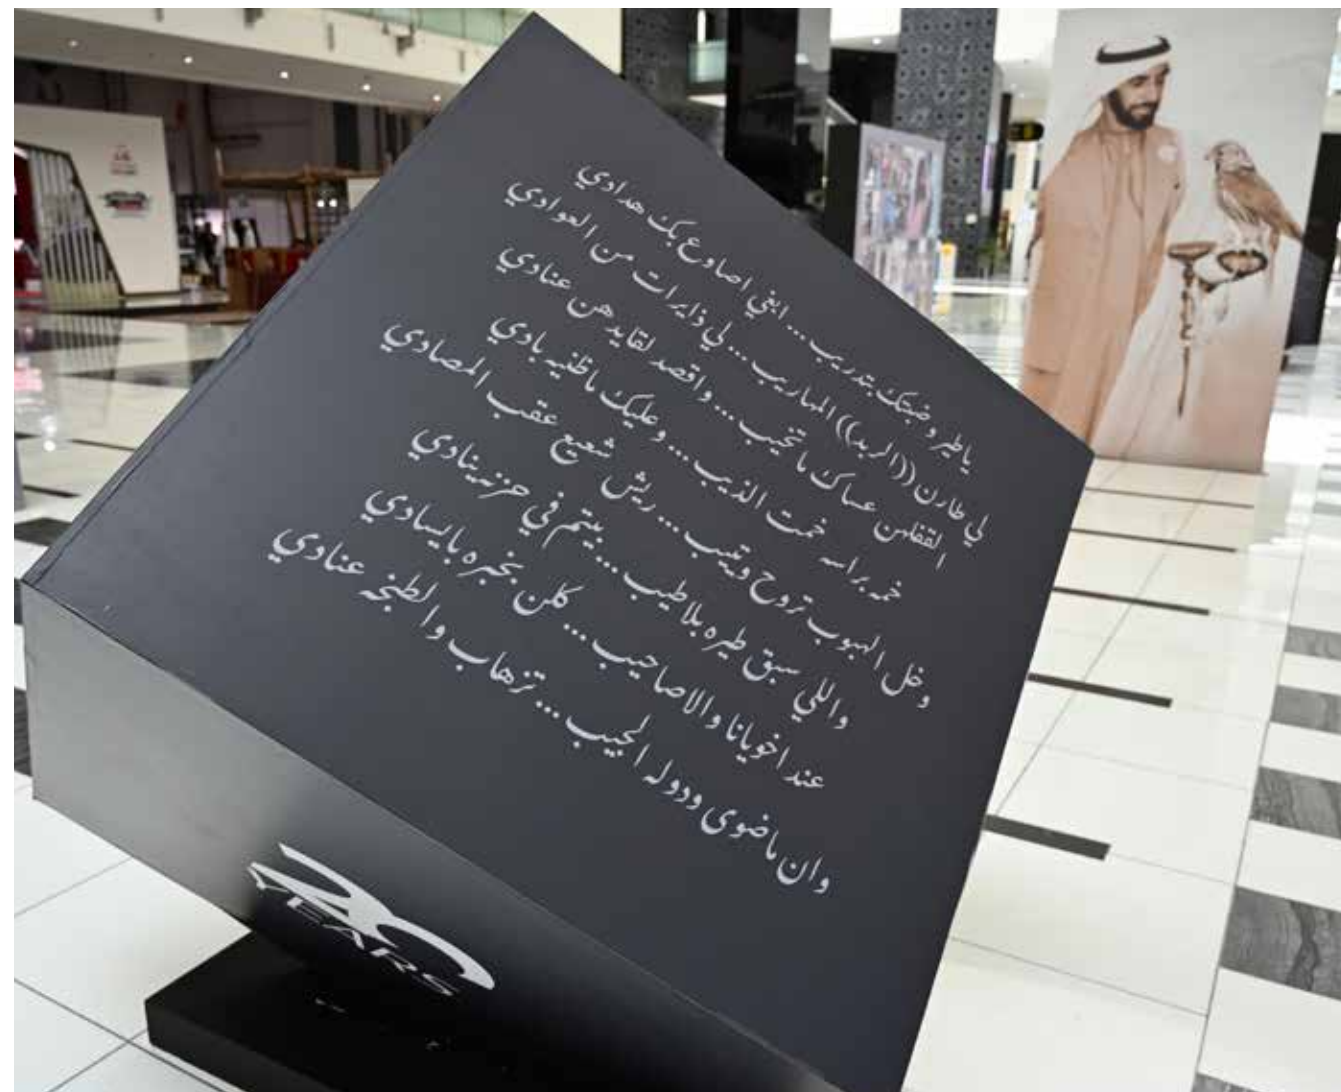 ياطير وضبتك بتدريب... ابغي اصاوع بك هدادي
لي طارن ((الربد)) المهاريب... لي ذايرات من العوادي
القفلهن عساك ما تخيب... واقصد لقايدهن عنادي
خمه براسه خمت الذيب... وعليك ماظنيه بادي
وخل الهبوب تروح وتييب... ريش شعيع عقب المصادي
واللي سبق طيره بلاطيب... يتم في حزنه ينادي
عند اخويانا والاصاحيب... كلن بخبره بايسادي
وان ماضوى ودوله الجيب... ترهاب والطبخه عنادي
20
YEARS